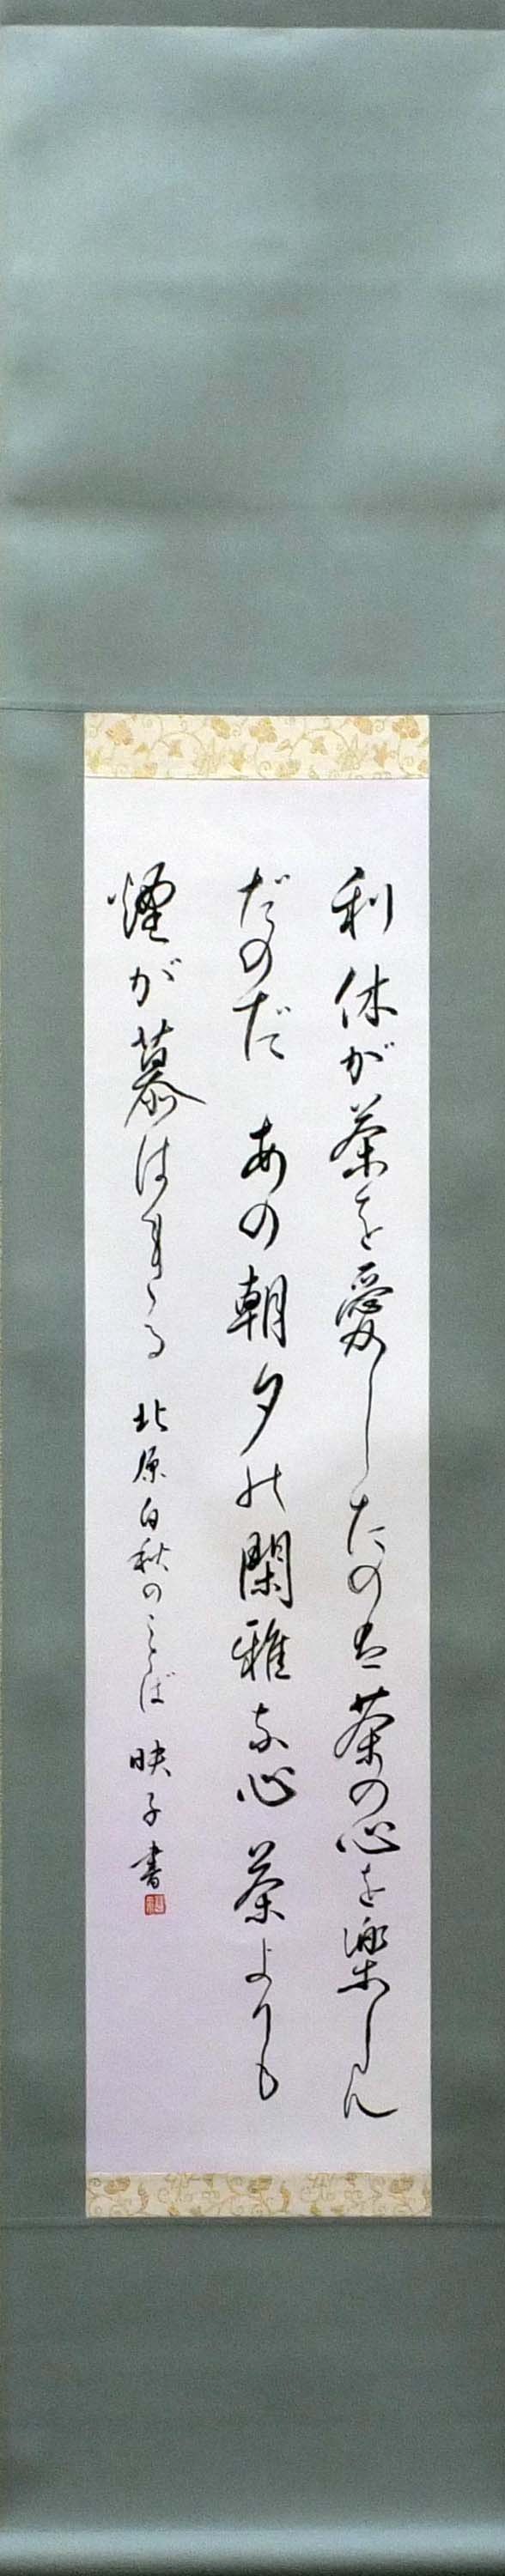 利休が茶を愛したのは茶の心を楽しん
だのだ あの朝夕の閑雅な心 茶よりも
煙が慕はれる 北原白秋のことば 映子書